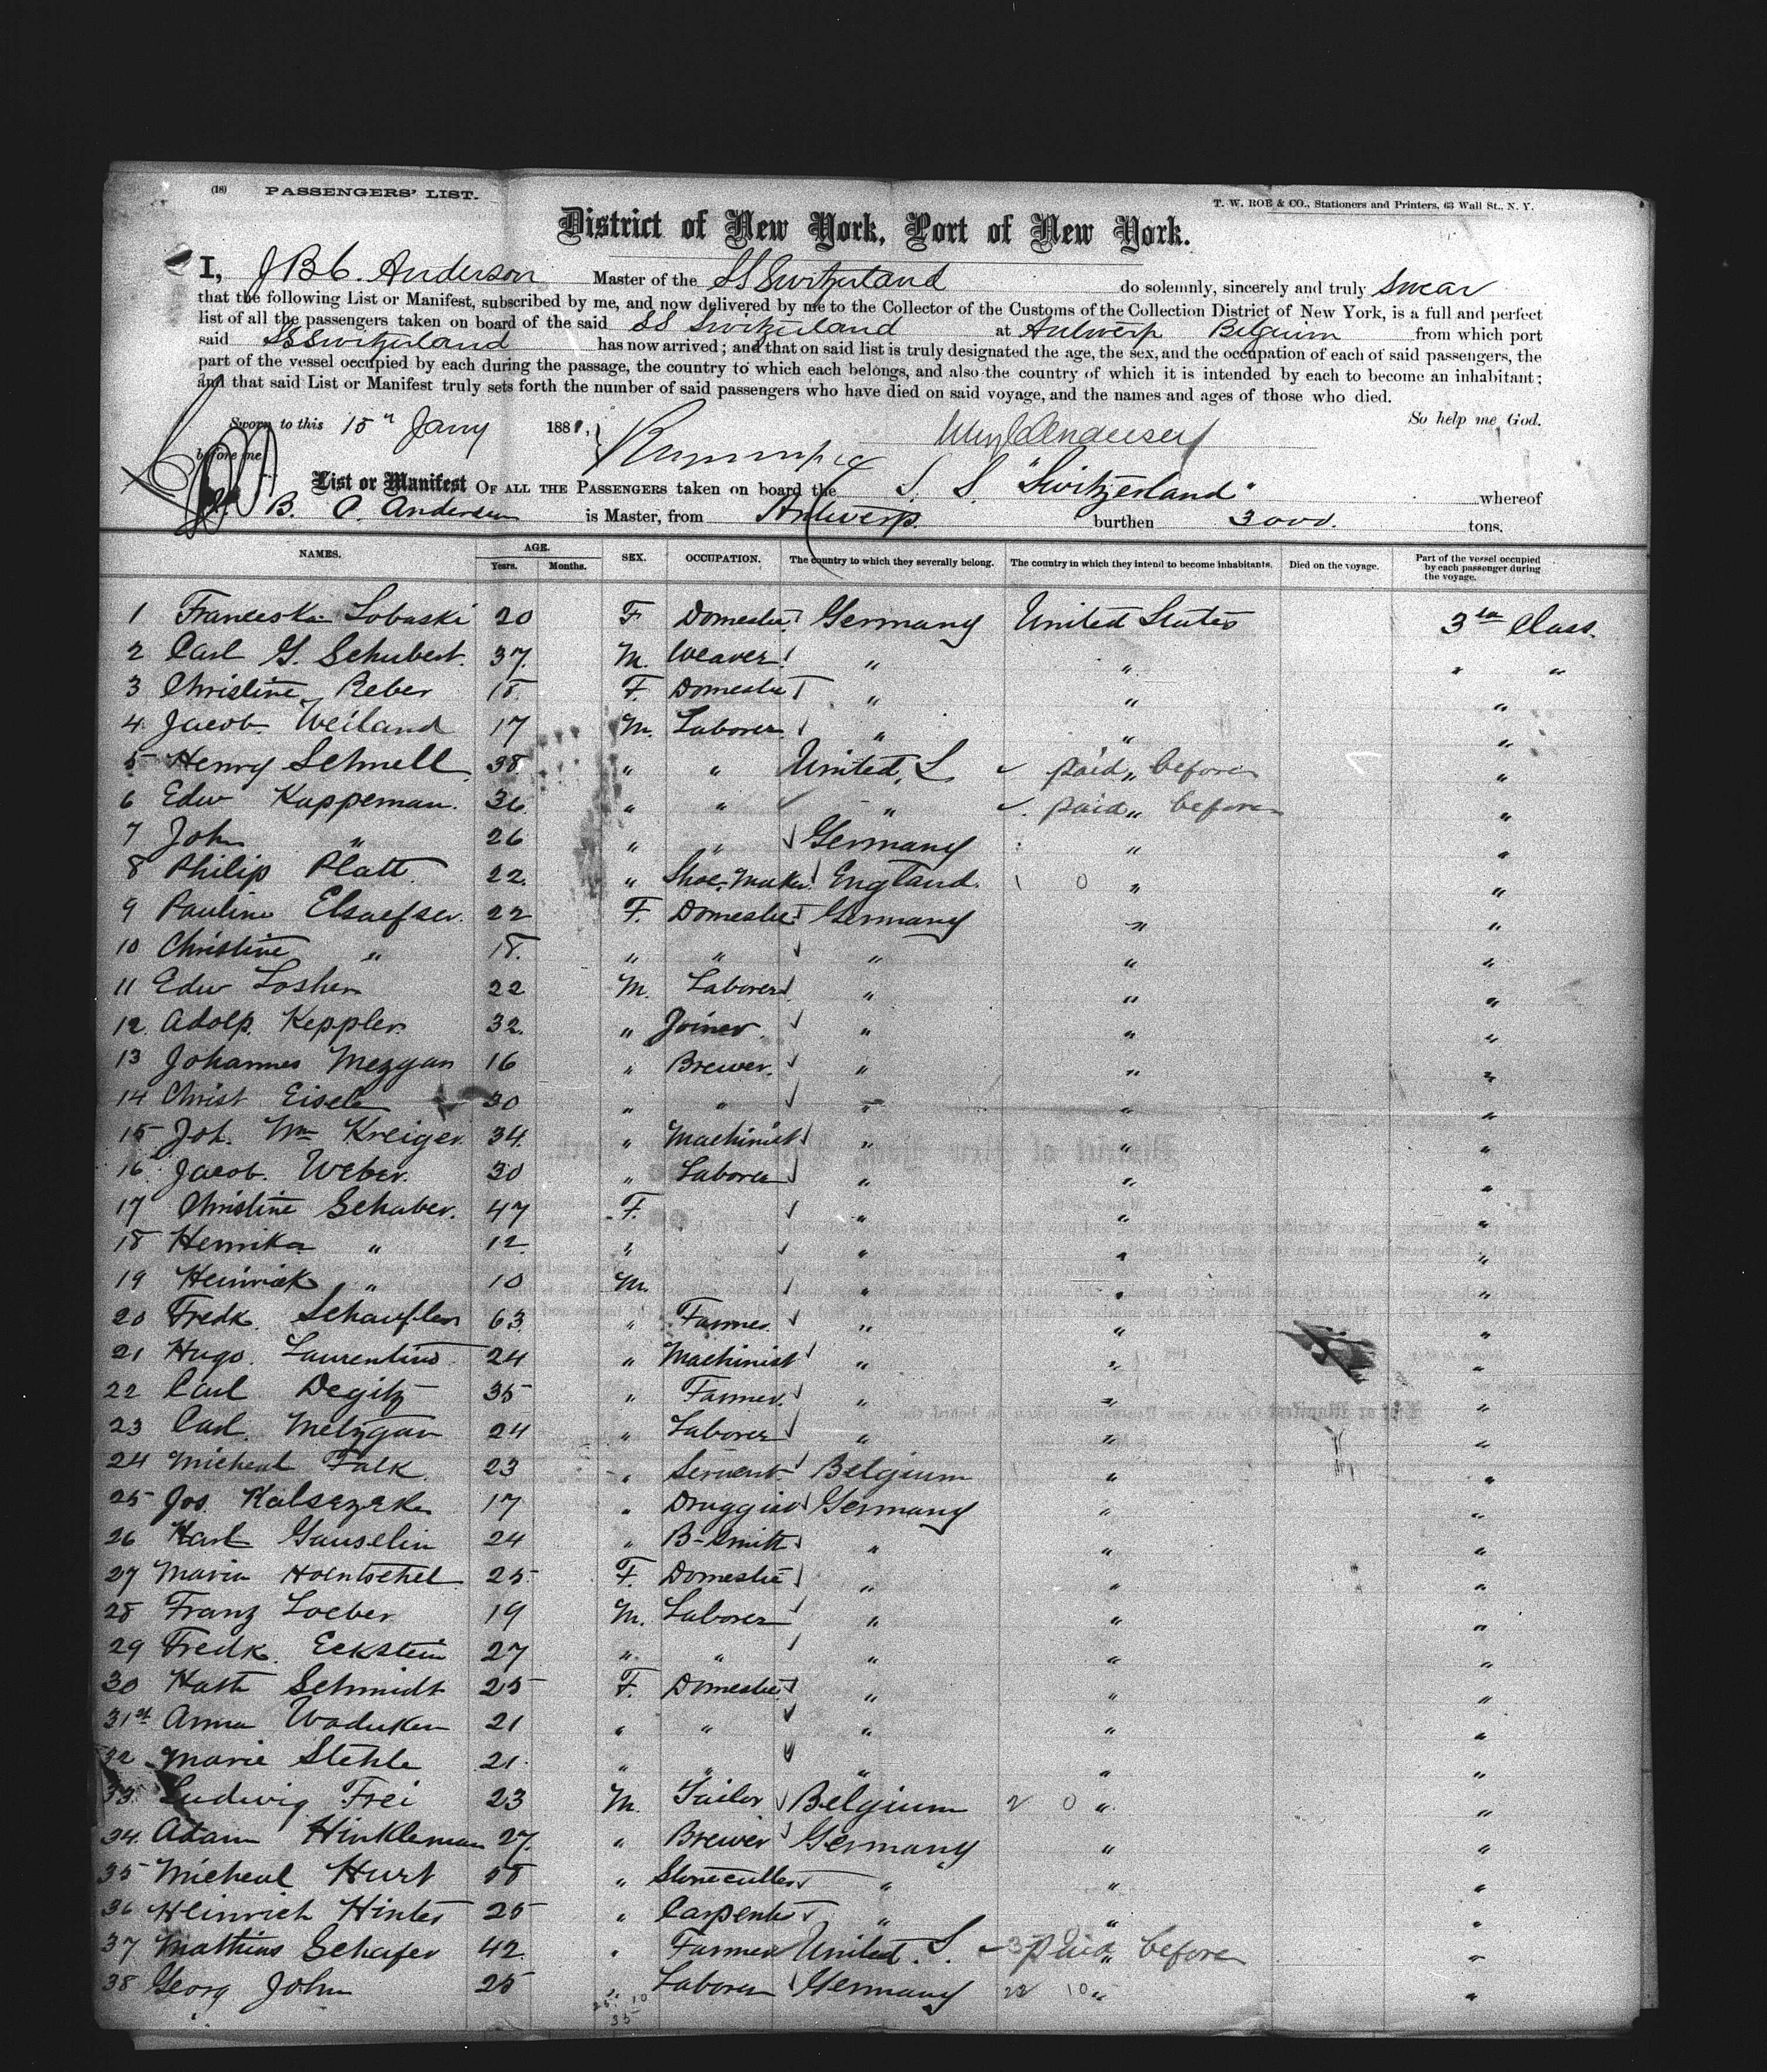 (18) PASSENGERS' LIST.
T. W. ROE & CO., Stationers and Printers, 63 Wall St., N. Y.
District of New York, Port of New York.
I, J B C. Anderson Master of the SS Switzerland do solemnly, sincerely and truly swear
that the following List or Manifest, subscribed by me, and now delivered by me to the Collector of the Customs of the Collection District of New York, is a full and perfect
list of all the passengers taken on board of the said SS Switzerland at Antwerp Belgium from which port
said SS Switzerland has now arrived; and that on said list is truly designated the age, the sex, and the occupation of each of said passengers, the
part of the vessel occupied by each during the passage, the country to which each belongs, and also the country of which it is intended by each to become an inhabitant;
and that said List or Manifest truly sets forth the number of said passengers who have died on said voyage, and the names and ages of those who died.
So help me God.
Sworn to this 15th Jany 1881,
before me
List or Manifest OF ALL THE PASSENGERS taken on board the S. S. "Switzerland" whereof
J. B. C. Anderson is Master, from Antwerp. burthen 3000. tons.
NAMES. AGE. Years. Months. SEX. OCCUPATION. The country to which they severally belong. The country in which they intend to become inhabitants. Died on the voyage. Part of the vessel occupied by each passenger during the voyage.
1 Franciska Lobaski 20 F Domestic Germany United States 3rd Class.
2 Carl G. Schubert. 37. M. Weaver " " " "
3 Christine Reber 18 F. Domestic " " "
4 Jacob Weiland 17 M. Laborer " " "
5 Henry Schnell 38 " " United S. paid " before "
6 Edw Kuppeman. 36 " " " paid " before "
7 John " 26 " " Germany " "
8 Philip Platt 22. " Shoe-Maker England. 1 0 " "
9 Pauline Elsaesser. 22 F. Domestic Germany " "
10 Christine " 18. " " " " "
11 Edw Losher 22 M. Laborer " " "
12. Adolp. Keppler. 32. " Joiner " " "
13 Johannes Mezgan 16 " Brewer. " " "
14 Christ Eisele 30 " " " " "
15 Joh. Wm Kreiger 34. " Machinist " " "
16 Jacob. Weber. 30 " Laborer " " "
17 Christine Schaber. 47 F. " " "
18 Henrika " 12. " " " "
19 Heinrick " 10 M. " " "
20 Fredk. Schaufler 63 " Farmer. " " "
21 Hugo. Laurentius 24 " Machinist " " "
22 Carl Degitz 35 " Farmer. " " "
23 Carl. Metzgan 24 " Laborer " " "
24 Micheal Falk 23 " Servant Belgium " "
25 Jos. 17 " Druggist Germany " "
26 Karl Gauselin 24 " B-Smith " " "
27 Maria Haentschel 25. F. Domestic " " "
28 Franz Loeber 19 M. Laborer " " "
29 Fredk. Eckstein 27 " " " " "
30 Kath Schmidt 25 F. Domestic " " "
31st Anna 21 " " " " "
32 Marie Stehle 21. " " " " "
33. Ludwig Frei 23 M. Tailor Belgium 2 0 " "
34. Adam Hinkleman 27. " Brewer Germany " "
35 Micheal Hurt 58 " Stonecutter " " "
36 Heinrich Hinter 25 " Carpenter " " "
37 Mathias Schafer 42 " Farmer United. S. 3 paid " before "
38 Georg John 25 " Laborer Germany 22 10 " "